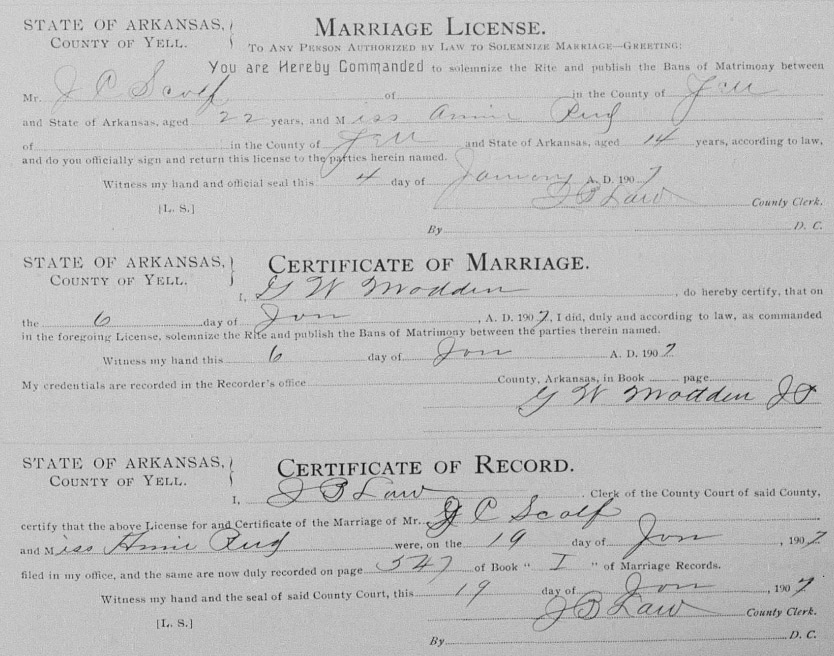 STATE OF ARKANSAS,
COUNTY OF YELL.
MARRIAGE LICENSE.
TO ANY PERSON AUTHORIZED BY LAW TO SOLEMNIZE MARRIAGE—GREETING:
You are Hereby Commanded to solemnize the Rite and publish the Bans of Matrimony between
Mr. J C Scolf of in the County of Yell
and State of Arkansas, aged 22 years, and Miss Annie
of in the County of Yell and State of Arkansas, aged 14 years, according to law,
and do you officially sign and return this license to the parties herein named.
Witness my hand and official seal this 4 day of January A. D. 1907
J B Law County Clerk.
[L. S.]
By D. C.
STATE OF ARKANSAS,
COUNTY OF YELL.
CERTIFICATE OF MARRIAGE.
I, G W Modden, do hereby certify, that on
the 6 day of Jan, A. D. 1907, I did, duly and according to law, as commanded
in the foregoing License, solemnize the Rite and publish the Bans of Matrimony between the parties therein named.
Witness my hand this 6 day of Jan A. D. 1907
My credentials are recorded in the Recorder's office County, Arkansas, in Book page
G W Modden JP
STATE OF ARKANSAS,
COUNTY OF YELL.
CERTIFICATE OF RECORD.
I, J B Law. Clerk of the County Court of said County,
certify that the above License for and Certificate of the Marriage of Mr. J C Scolf
and Miss Annie were, on the 19 day of Jan, 1907
filed in my office, and the same are now duly recorded on page 547 of Book " I " of Marriage Records.
Witness my hand and the seal of said County Court, this 19 day of Jan, 1907
J B Law County Clerk.
[L. S.]
By D. C.